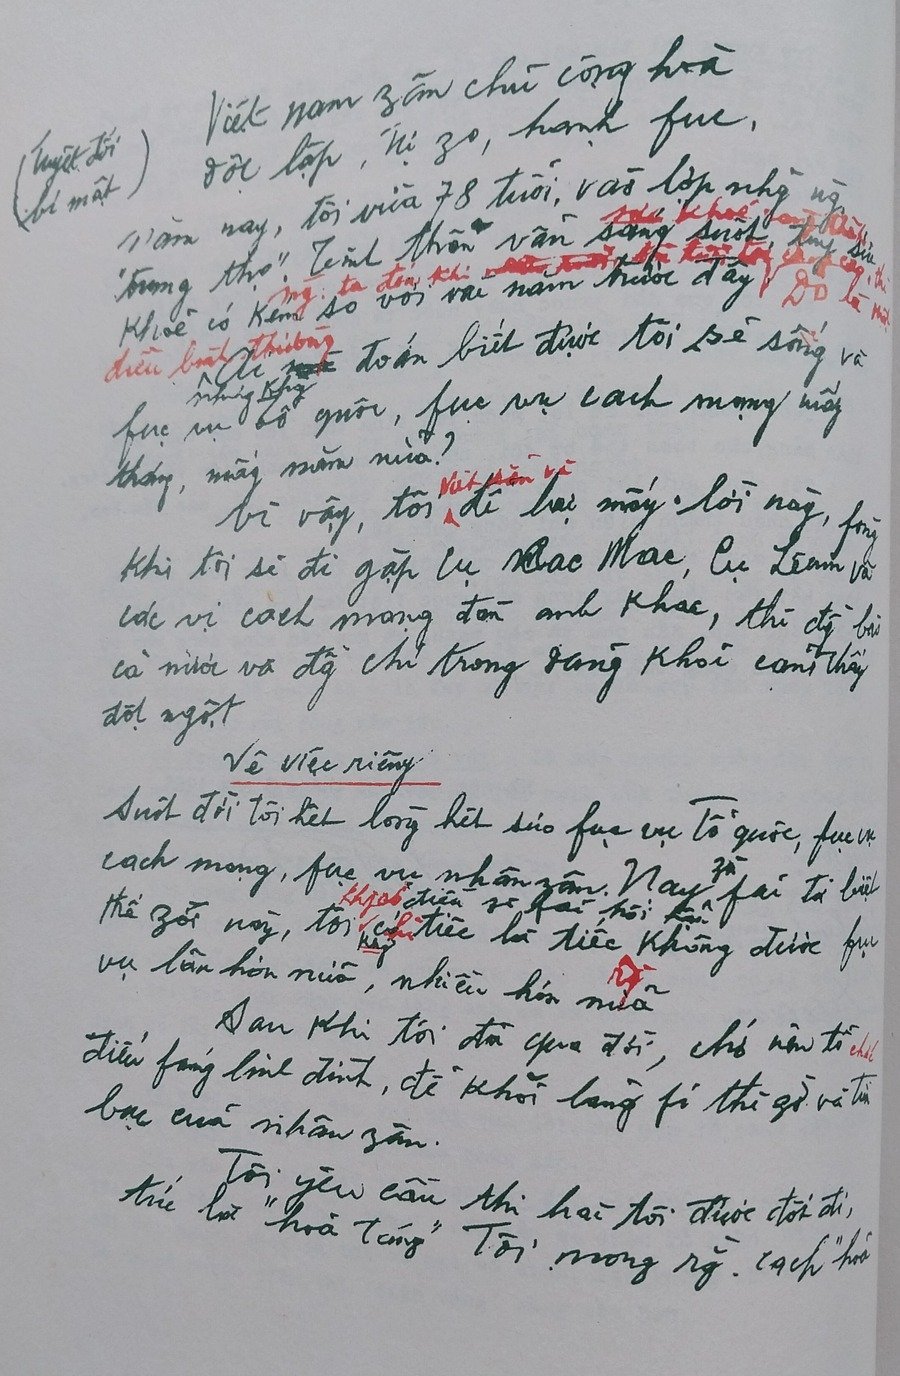 Việt nam zân chủ cộng hoà
độc lập, tự zo, hạnh fúc,
(tuyệt đối
bí mật)
Năm nay, tôi vừa 78 tuổi, vào lớp nhg ng.
"trung thọ". Tinh thần vẫn sáng suốt, tuy sức
khoẻ có kém so với vài năm trước đây
ng. ta đến khi
Đó là một
điều bình thường
Ai đoán biết được tôi sẽ sống và
fục vụ tổ quốc, fục vụ cách mạng mấy
tháng, mấy năm nữa?
Vì vậy, tôi viết sẵn và để lại mấy lời này, fòng
khi tôi sẽ đi gặp Cụ Các Mác, Cụ Lênin và
các vị cách mạng đàn anh khác, thì đg bào
cả nước và đg chí trong đảng khỏi cảm thấy
đột ngột
Về việc riêng
Suốt đời tôi hết lòng hết sức fục vụ Tổ quốc, fục vụ
cách mạng, fục vụ nhân zân. Nay zù fải từ biệt
thế zới này, tôi khg có điều zì fải hối hận
chỉ tiếc là tiếc không được fục
vụ lâu hơn nữa, nhiều hơn nữa
Sau khi tôi đã qua đời, chớ nên tổ chức
điếu fúng linh đình, để khỏi lãng fí thì zờ và tiền
bạc của nhân zân.
Tôi yêu cầu thi hài tôi được đốt đi,
tức là "hoả táng" Tôi mong rg. cách "hoả